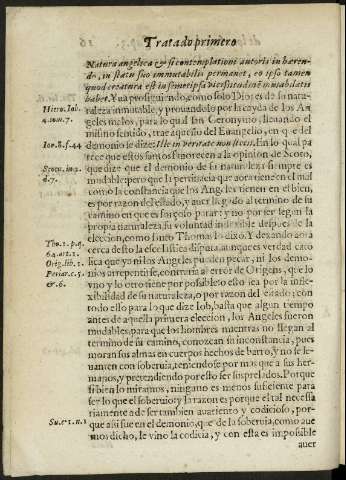 Tratado primero
Natura angelica & si contemplationi autoris in hæren-
do, in statu suo immutabilis permanet, eo ipso tamen
quod creatura est in semetipsa vicissitudinē mutabilitatis
habet. Y va prosiguiendo, como solo Dios es de su natu-
raleza inmutable, y prouandolo por la cayda de los An
geles malos, para lo qual san Geronymo, lleuando el
mismo sentido, trae aquello del Euangelio, en que del
demonio se dize: Ille in veritate non stetit. En lo qual pa
rece que estos santos fauorecen a la opinion de Scoto,
que dize que el demonio de su naturaleza siempre es
mudable: pero que la pertinacia que aora tiene en el mal
como la constancia que los Angeles tienen en el bien,
es por razon del estado, y auer llegado al termino de su
camino en que es forçoso parar: y no por ser segun la
propia naturaleza, su voluntad indexible despues de la
eleccion, como santo Thomas lo dixo. Y dexando aora
cerca desto la escolastica disputa: aunque es verdad cato
lica que ya ni los Angeles pueden pecar, ni los demo-
nios arrepentirse, contraria al error de Origenes, que lo
vno y lo otro tiene por possible: o esto sea por la infle-
xibilidad de su naturaleza, o por razon del estado; con
todo esso para lo que dize Iob, basta que algun tiempo
antes de aquella primera eleccion, los Angeles fueron
mudables, para que los hombres mientras no llegan al
termino de su camino, conozcan su inconstancia, pues
moran sus almas en cuerpos hechos de barro, y no se le-
uanten con soberuia, teniendose por mas que a sus her-
manos, y pretendiendo por esto ser sus prelados. Porque
si bien lo miramos, ninguno es menos suficiente para
ser lo que el soberuio: y la razon es porque el tal necessa
riamente a de ser tambien auariento y codicioso, por-
que assi fue en el demonio, que de la soberuia, como aue
mos dicho, le vino la codicia, y con esta es impossible
auer
Hiero. Iob.
4. nu. 7.
Ioā. 8. f. 44
Scotu. in 2.
d. 7.
Tho. 1. p. q.
64. ar. 2.
Orig. lib. 1.
Periar. c. 5.
& 6.